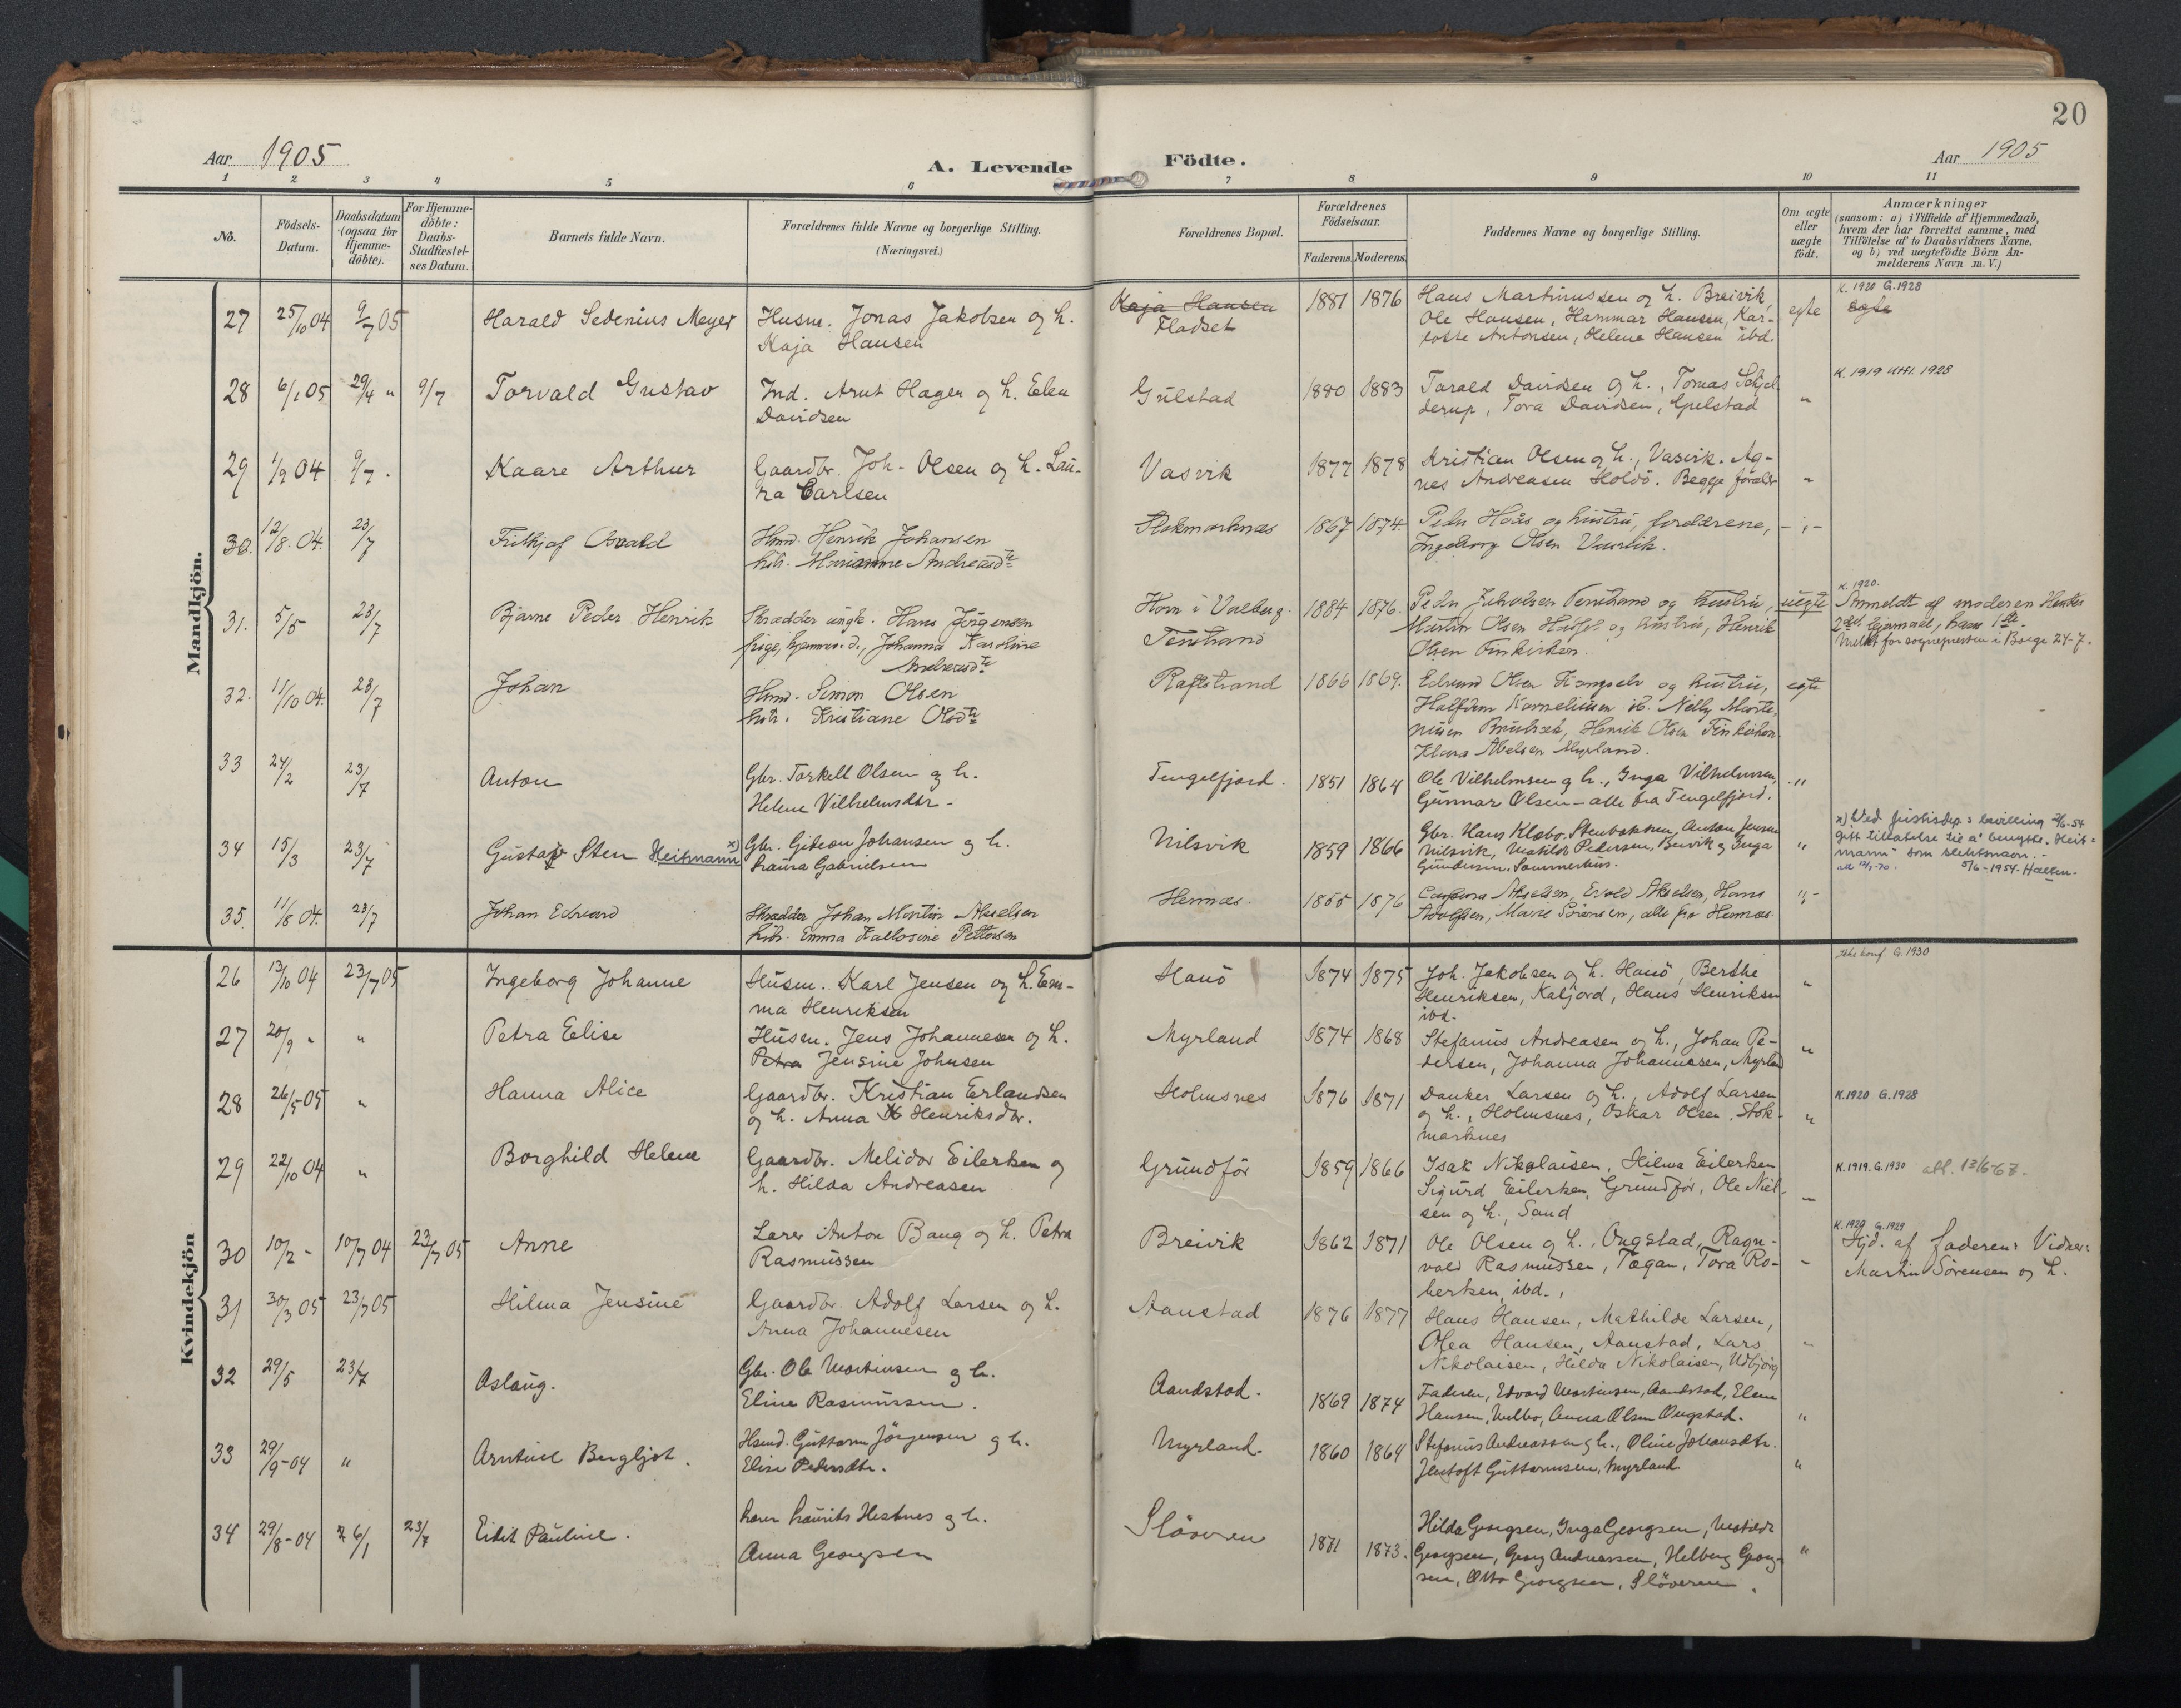 20
Aar 1905
A. Levende Födte.
Aar 1905
1 2 3 4 5 6 7 8 9 10 11
No.
Födsels-Datum.
Daabsdatum (ogsaa for Hjemme-döbte).
For Hjemme-döbte: Daabs-Stadfæstel-ses Datum.
Barnets fulde Navn.
Forældrenes fulde Navne og borgerlige Stilling. (Næringsvei.)
Forældrenes Bopæl.
Forældrenes Födselsaar.
Faderens. Moderens.
Faddernes Navne og borgerlige Stilling.
Om ægte eller uægte födt.
Anmærkninger
(saasom: a) i Tilfælde af Hjemmedaab,
hvem der har forrettet samme, med
Tilföielse af to Daabsvidners Navne,
og b) ved uægtefödte Börn An-
melderens Navn m. V.)
Mandkjön.
27 25/10 04 9/7 05 Harald Sedenius Meyer Husm. Jonas Jakobsen og h. Kaja Hansen
Kaja Hansen Fladset 1881 1876 Hans Martinussen og h. Breivik,
Ole Hansen, Hammar Hansen, Kar-
lotte Antonsen, Helene Hansen ibd.
egte
K. 1920 G. 1928
egte
28 6/1 05 29/4 " 9/7 Torvald Gustav Ind. Arnt Hagen og h. Elen Davidsen
Gulstad 1880 1883 Tarald Davidsen og h., Tomas Schjel-
derup, Tora Davidsen, Gulstad
"
K. 1919 1928
29 1/9 04 9/7 . Kaare Arthur Gaardbr. Joh. Olsen og h. Lau-
ra Carlsen
Vasvik 1877 1878 Kristian Olsen og h., Vasvik. Ag-
nes Andreasen Holdö. Begge foræld
"
30. 12/8 04. 23/7 Fritkjof Osvald Hmd. Henrik Johansen
hstr. Marianne Andreasdtr
Stokmarknæs 1867 1874 Peder Hoås og hustru, forældrene,
Ingeborg Olsen
- " -
31. 5/5 23/7 Bjarne Peder Henrik Skrædder ungk. Hans Jörgensen
pige, hjemmev. d., Johanna Karoline
Andreasdtr
Horn i Valberg. 1884 1876. Peder Jakobsen og hustru,
Martin Olsen og hustru, Henrik
Olsen Finkirken.
uegte
K. 1920.
Anmeldt af moderen Hendes
2det leiermaal, hans 1ste.
Meldt for sognepresten i Borge 24-7.
32. 11/10 04. 23/7 Johan Hmd. Simon Olsen
hstr. Kristiane Olsdtr
Raftstrand 1866 1869. Edvard Olsen og hustru,
Halfdan Kornelius Nelly
Henrik Olsen Finkirken
Klara Abelsen Myrland.
egte
33 24/2 23/7 Anton Gbr. Torkell Olsen og h.
Helene Vilhelmsdtr.
Tengelfjord. 1851 1864 Ole Vilhelmsen og h., Inga Vilhelmsen,
Gunnar Olsen - alle fra Tengelfjord.
"
34 15/3 23/7 Gustav Sten Heitmann x) Gbr. Gideon Johansen og h.
Laura Gabrielsen
Nilsvik 1859 1866 Gbr. Hans Klæbo. Anton Jensen
Nilsvik, Matilde Pedersen, og Inga
Gundersen. Sommerhus.
"
x) Ved justisdep.s bevilling 2/6-54
gitt tillatelse til å benytte "Heit-
mann" som slektsnavn. -
5/6-1954.
35. 11/8 04. 23/7 Johan Edvard Skrædder Johan Martin Akselsen
hstr. Emma Kallosine Pettersen
Hennæs. 1855 1876 Akselsen, Evald Akselsen, Hans
Adolfsen, Marie Sörensen, alle fra Hennæs.
" -
Kvindekjön
26 13/10 04 23/7 05 Ingeborg Johanne Husm. Karl Jensen og h. Em-
ma Henriksen
Hanö 1874 1875 Joh. Jakobsen og h. Hanö, Berthe
Henriksen, Kaljord, Hans Henriksen
ibd.
"
Ikke konf. G. 1930
27 20/9 " " Petra Elise Husm. Jens Johannesen og h.
Petra Jensine Johnsen
Myrland 1874 1868 Stefanus Andreasen og h., Johan Pe-
dersen, Johanna Johannessen, Myrland
"
28 26/5 05 " Hanna Alice Gaardbr. Kristian Erlandsen
og h. Anna Henriksdtr.
Holmsnes 1876 1871 Danker Larsen og h., Adolf Larsen
og h., Holmsnes, Oskar Olsen, Stok-
marknes
"
K. 1920 G. 1928
29 22/10 04 " Borghild Helene Gaardbr. Melidor Eilertsen og
h. Hilda Andreasen
Grundför 1859 1866 Isak Nikolaisen, Hilma Eilertsen
Sigurd Eilertsen, Grundför, Ole Niel-
sen og h., Sand
"
K. 1919. G. 1930 att. 13/6-67.
30 10/2 - 10/7 04 23/7 05 Anne Lærer Anton Bang og h. Petra
Rasmussen
Breivik 1862 1871 Ole Olsen og h., Ongstad, Ragn-
vald Rasmussen, Tægan, Tora Ro-
bertsen, ibd.
"
K. 1920 G. 1929
Hjd. af faderen: Vidner:
Martin Sörensen og h.
31 30/3 05 23/7 05 Hilma Jensine Gaardbr. Adolf Larsen og h.
Anna Johannesen
Aanstad 1876 1877 Hans Hansen, Mathilde Larsen,
Olea Hansen, Aanstad, Lars
Nikolaisen, Hilda Nikolaisen, Udbjörg
"
32 29/5 23/7 Aslaug. Gbr. Ole Martinsen og h.
Eline Rasmussen.
Aandstad. 1869 1874 Faderen, Edvard Martinsen, Aandstad, Elene
Hansen, Melbo, Anna Olsen Ongstad.
"
33 29/9-04 " Arntine Bergljot. Hsmd. Guttorm Jörgensen og h.
Elise Pedersdtr.
Myrland. 1860 1864 Stefanus Andreassen og h., Oline Johansdtr.
Jentoft Guttormsen, Myrland
"
34 29/8-04 26/1 23/7 Edit Pauline. Lærer Laurits Hestnes og h.
Anna Georgsen
Slöveren 1871 1873. Hilda Georgsen, Inga Georgsen, Matilde
Georgsen, Georg Andreassen, Helberg Georg-
sen, Otto Georgsen, Slöveren.
"